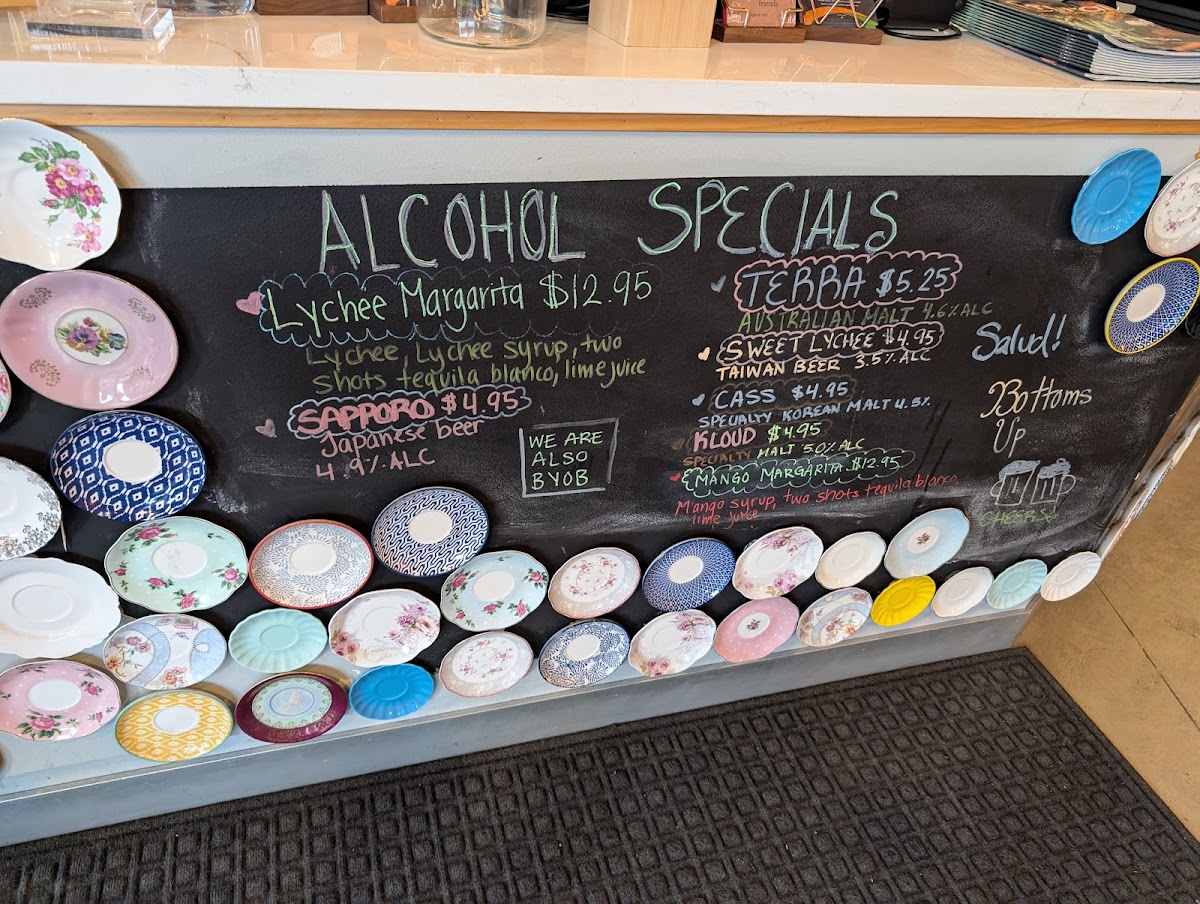 ALCOHOL SPECIALS
Lychee Margarita $12.95
Lychee, Lychee syrup, two
shots tequila blanco, lime juice
SAPPORO $4.95
Japanese beer
4.9% ALC
WE ARE
ALSO
BYOB
TERRA $5.25
AUSTRALIAN MALT 4.6% ALC
SWEET LYCHEE $4.95
TAIWAN BEER 3.5% ALC
CASS $4.95
SPECIALTY KOREAN MALT 4.5%
KLOUD $4.95
SPECIALTY MALT 5.0% ALC
MANGO MARGARITA $12.95
Mango syrup, two shots tequila blanco,
lime juice
Salud!
Bottoms
Up
CHEERS!
friends